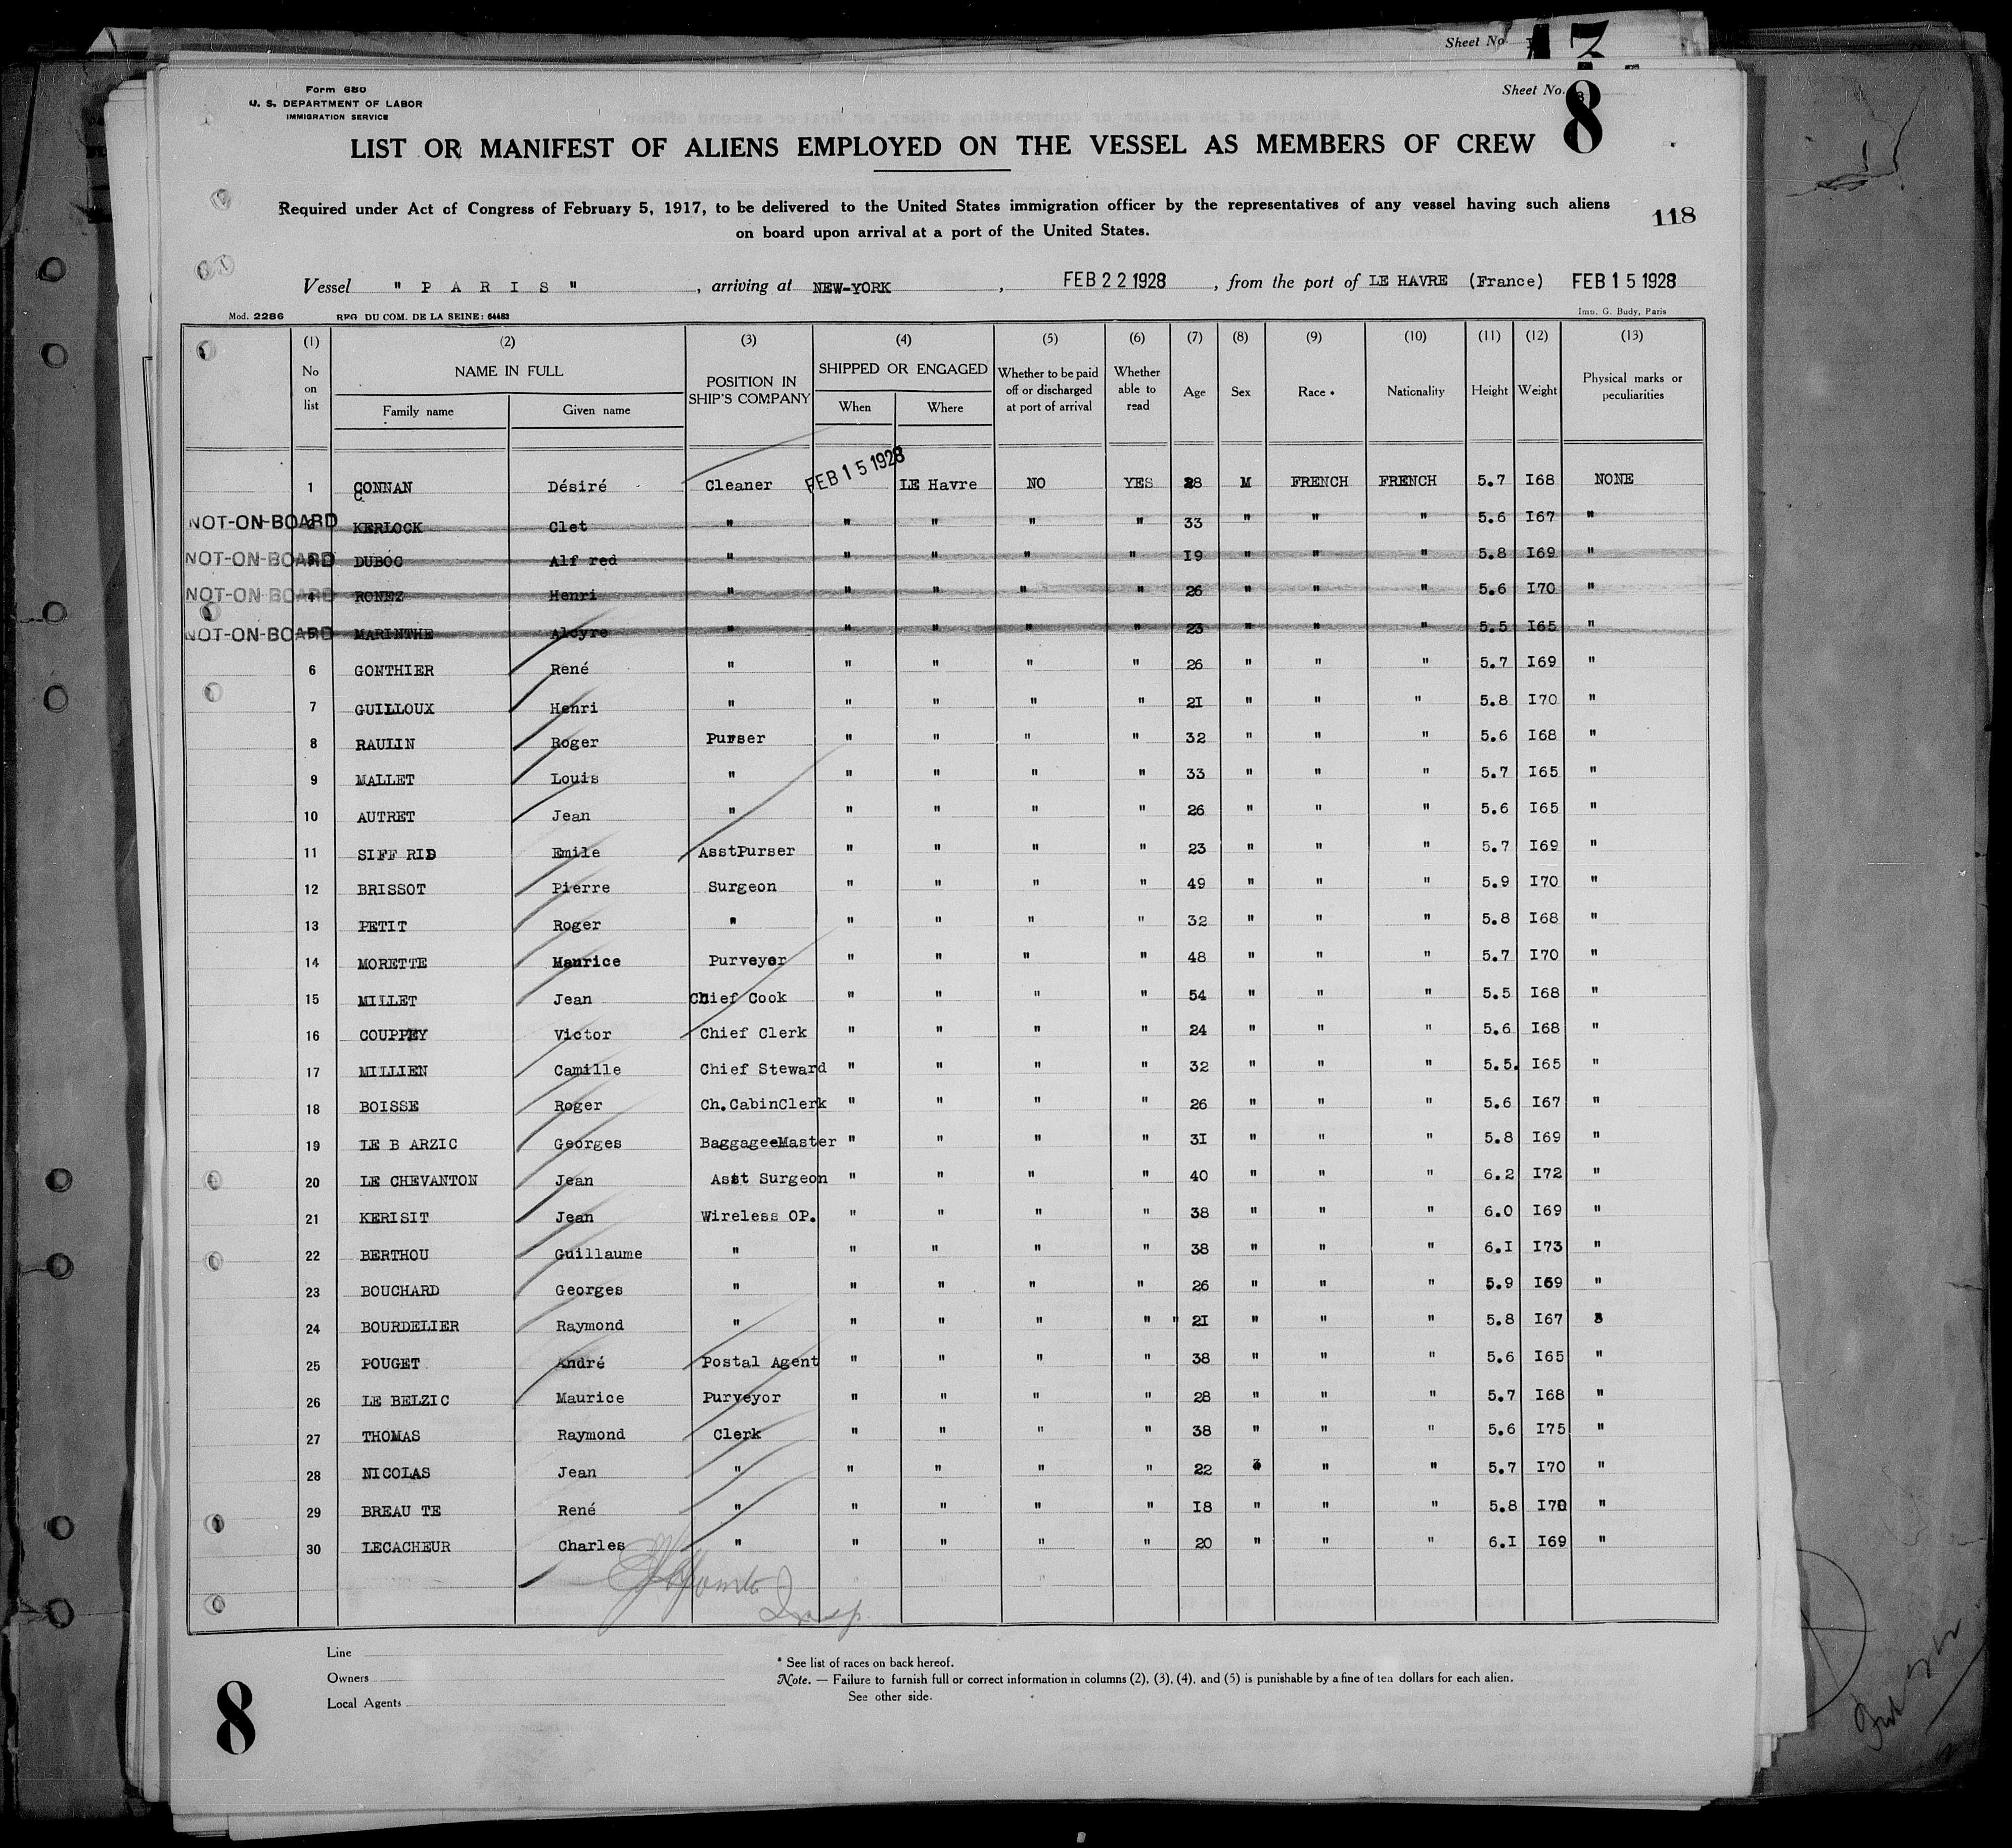 Sheet No
13
Form 680
U. S. DEPARTMENT OF LABOR
IMMIGRATION SERVICE
Sheet No. 8
8
LIST OR MANIFEST OF ALIENS EMPLOYED ON THE VESSEL AS MEMBERS OF CREW
Required under Act of Congress of February 5, 1917, to be delivered to the United States immigration officer by the representatives of any vessel having such aliens
on board upon arrival at a port of the United States.
118
Vessel " P A R I S " , arriving at NEW-YORK , FEB 2 2 1928 , from the port of LE HAVRE (France) FEB 1 5 1928
Mod. 2286 REG DU COM. DE LA SEINE: 64483 Imp. G. Budy, Paris
(1) (2) (3) (4) (5) (6) (7) (8) (9) (10) (11) (12) (13)
No on list NAME IN FULL Family name Given name POSITION IN SHIP'S COMPANY SHIPPED OR ENGAGED When Where Whether to be paid off or discharged at port of arrival Whether able to read Age Sex Race * Nationality Height Weight Physical marks or peculiarities
1 CONNAN Désiré Cleaner FEB 1 5 1928 LE Havre NO YES 28 M FRENCH FRENCH 5.7 I68 NONE
NOT-ON-BOARD 2 KERLOCK Clet " " " " " 33 " " " 5.6 I67 "
NOT-ON-BOARD 3 DUBOC Alf red " " " " " I9 " " " 5.8 I69 "
NOT-ON-BOARD 4 RONEZ Henri " " " " " 26 " " " 5.6 I70 "
NOT-ON-BOARD 5 MARINTHE Alcyre " " " " " 23 " " " 5.5 I65 "
6 GONTHIER René " " " " " 26 " " " 5.7 I69 "
7 GUILLOUX Henri " " " " " 2I " " " 5.8 I70 "
8 RAULIN Roger Purser " " " " 32 " " " 5.6 I68 "
9 MALLET Louis " " " " " 33 " " " 5.7 I65 "
10 AUTRET Jean " " " " " 26 " " " 5.6 I65 "
11 SIFF RID Emile AsstPurser " " " " 23 " " " 5.7 I69 "
12 BRISSOT Pierre Surgeon " " " " 49 " " " 5.9 I70 "
13 PETIT Roger " " " " " 32 " " " 5.8 I68 "
14 MORETTE Maurice Purveyor " " " " 48 " " " 5.7 I70 "
15 MILLET Jean Chief Cook " " " " 54 " " " 5.5 I68 "
16 COUPPEY Victor Chief Clerk " " " " 24 " " " 5.6 I68 "
17 MILLIEN Camille Chief Steward " " " " 32 " " " 5.5. I65 "
18 BOISSE Roger Ch.CabinClerk " " " " 26 " " " 5.6 I67 "
19 LE B ARZIC Georges BaggageeMaster " " " " 3I " " " 5.8 I69 "
20 LE CHEVANTON Jean Asst Surgeon " " " " 40 " " " 6.2 I72 "
21 KERISIT Jean Wireless OP. " " " " 38 " " " 6.0 I69 "
22 BERTHOU Guillaume " " " " " 38 " " " 6.I I73 "
23 BOUCHARD Georges " " " " " 26 " " " 5.9 I69 "
24 BOURDELIER Raymond " " " " " " 2I " " " 5.8 I67 "
25 POUGET André Postal Agent " " " " 38 " " " 5.6 I65 "
26 LE BELZIC Maurice Purveyor " " " " 28 " " " 5.7 I68 "
27 THOMAS Raymond Clerk " " " " 38 " " " 5.6 I75 "
28 NICOLAS Jean " " " " " 22 " " " 5.7 I70 "
29 BREAU TE René " " " " " I8 " " " 5.8 I70 "
30 LECACHEUR Charles " " " " " 20 " " " 6.I I69 "
Insp.
Line
Owners
Local Agents
* See list of races on back hereof.
Note. — Failure to furnish full or correct information in columns (2), (3), (4), and (5) is punishable by a fine of ten dollars for each alien.
See other side.
8